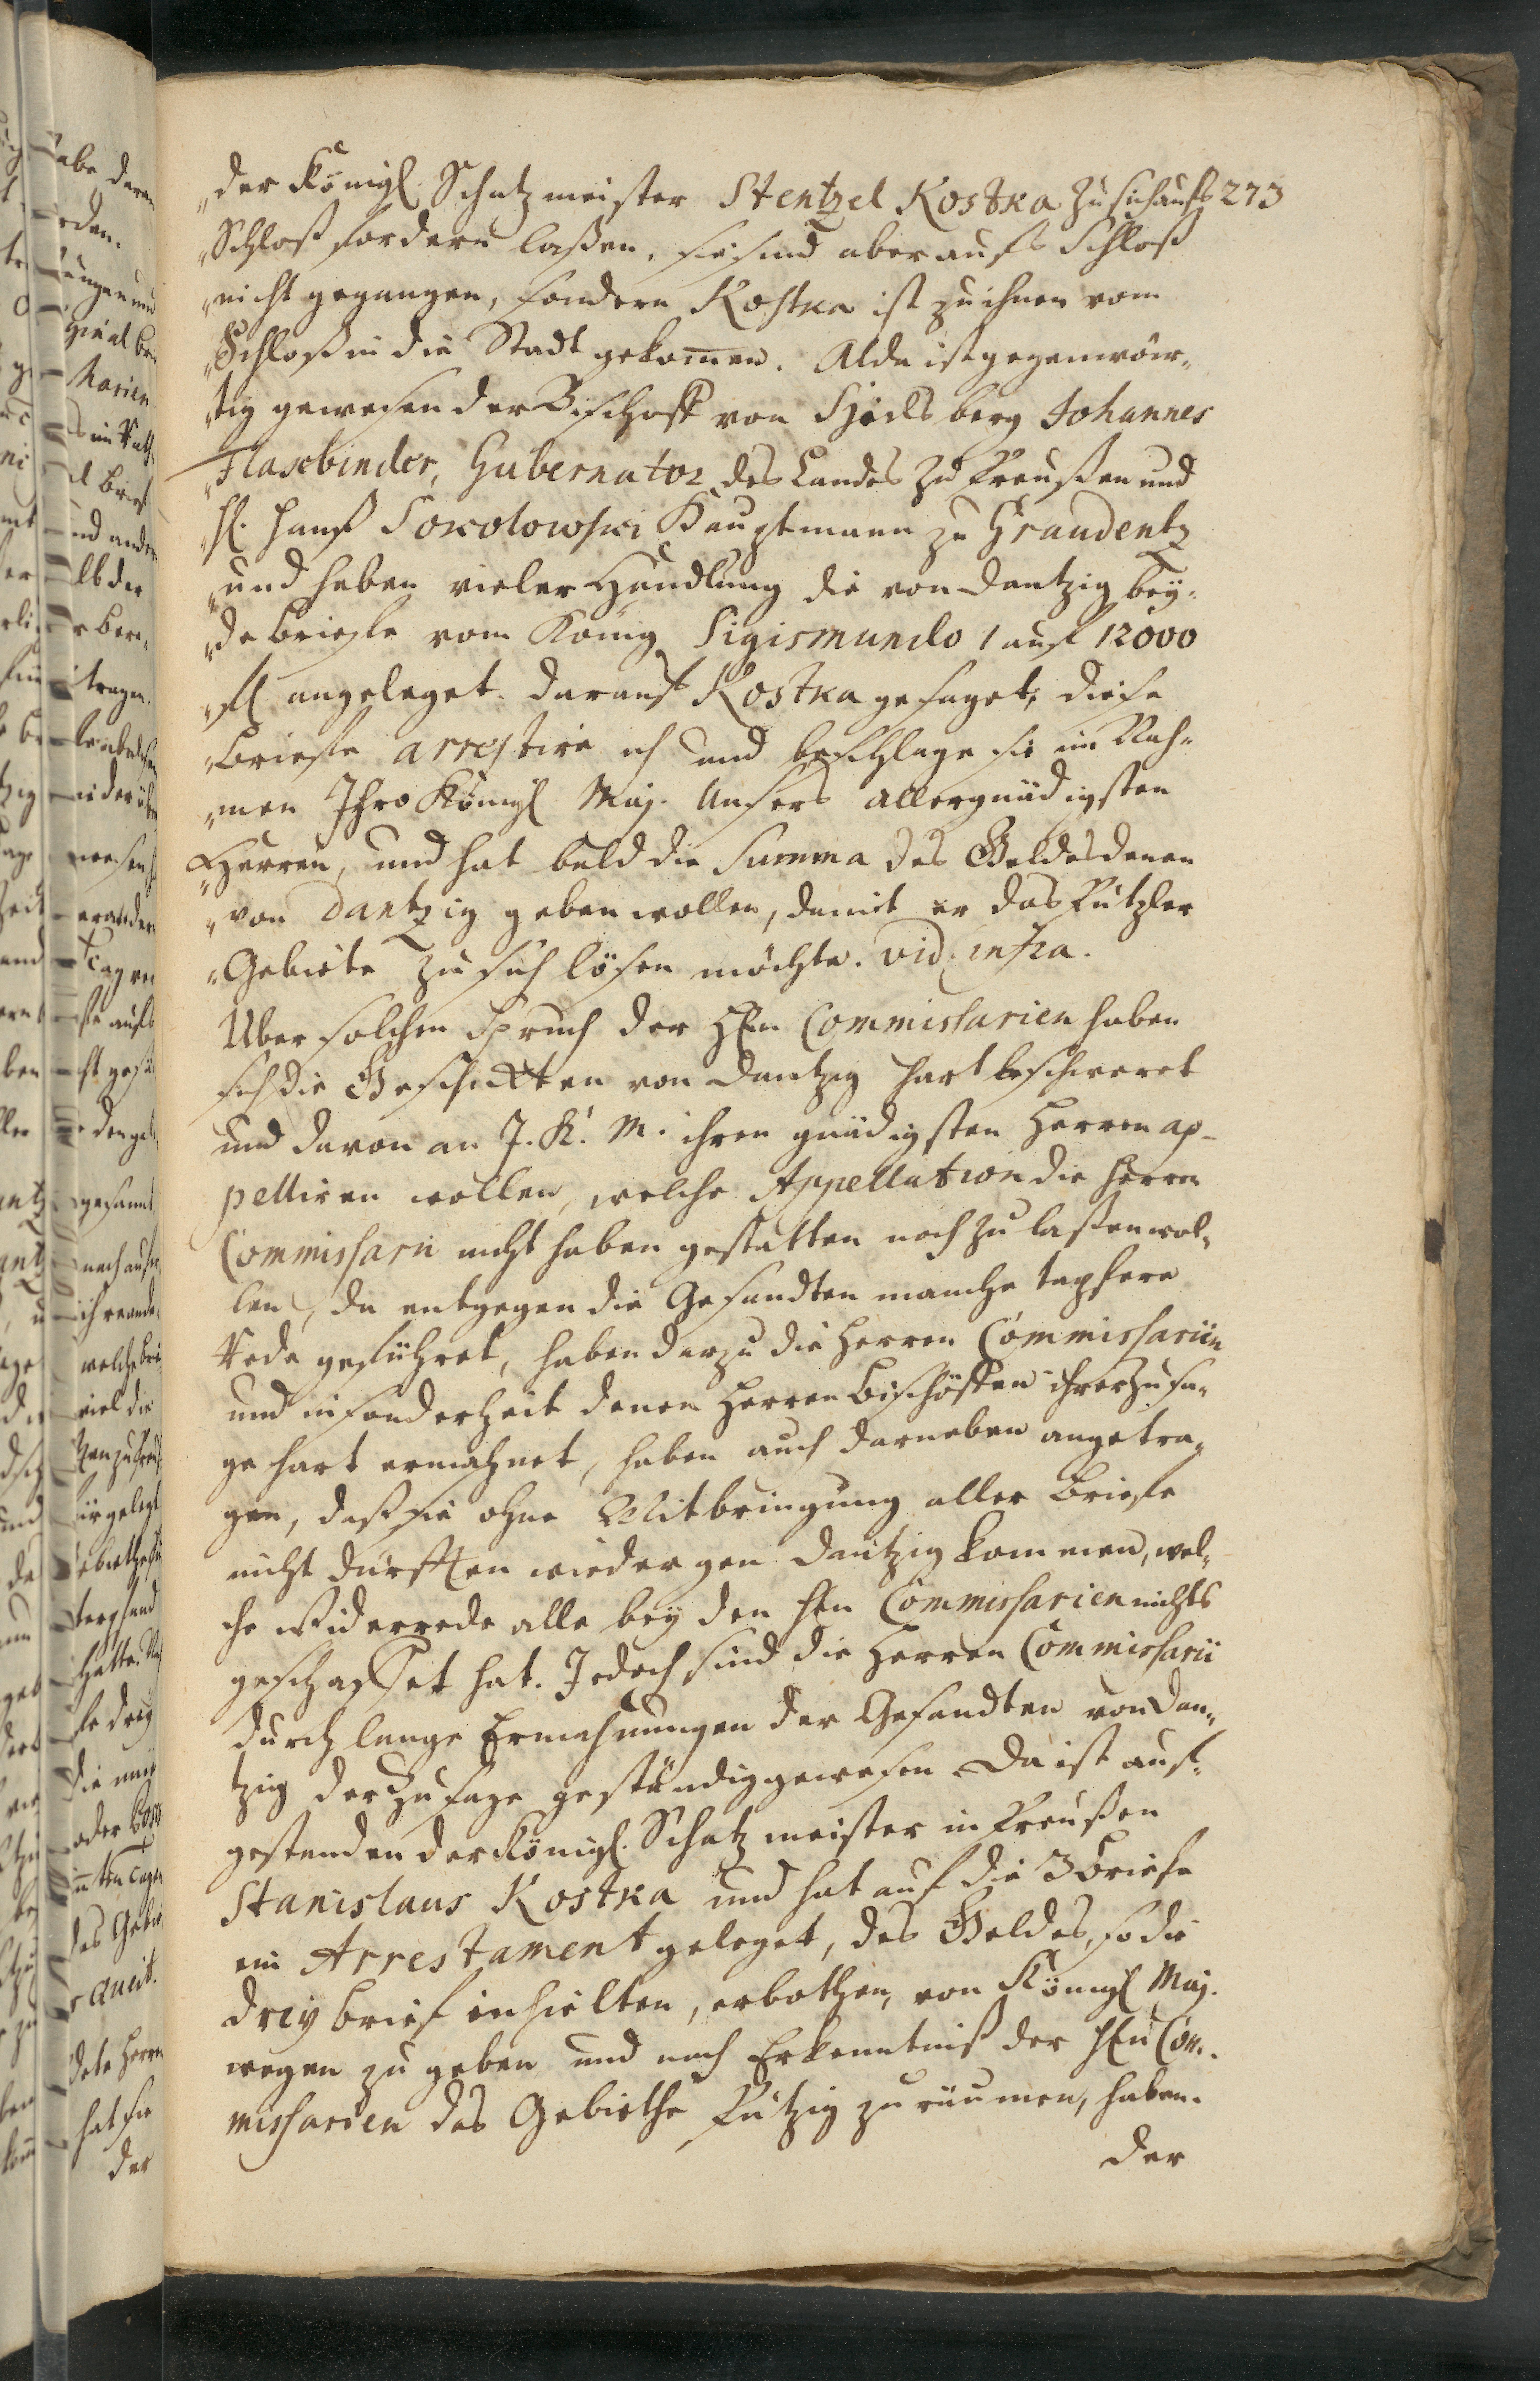 273
„der Königl. Schatzmeister Stentzel Kostka zu sich aufs
„Schloß fordern laßen, sie sind aber aufs Schloß
„nicht gegangen, sondern Kostka ist zu ihnen vom
„Schloß in die Stadt gekom̄en. Alda ist gegenwär„
„tig gewesen der Bischoff von Heilsberg Johannes
„Flasebinder, Gubernator des Landes zu Preußen und
„H. Hanß Sokolowski Hauptmann zu Graudentz
„und haben vieler Handlung die von Dantzig bey„
„de Briefe vom König Sigismundo 1 auf 12000
„fl angeleget. Darauf Kostka gesaget, diese
„Briefe arrestire ich und beschlage sie im Nah„
„men Ihro Königl Maj. Unsers allergnädigsten
„Herren, und hat bald die Summa des Geldes denen
„von Dantzig geben wollen, damit er das Putzker
„Gebiete zu sich lösen möchte. vid. infra.
Uber solchen Spruch der HEn Commissarien haben
sich die Geschickten von Dantzig hart beschweret
und davon an J. K. M. ihren gnädigsten Herren ap-
pelliren wollen, welche Appellation die Herren
Commissarii nicht haben gestatten noch zu laßen wol„
len, da entgegen die Gesandten manche tapfere
Rede geführet, haben darzu die Herren Commissarien
und insonderheit denen Herren Bischöffen ihrer Zusa„
ge hart ermahnet, haben auch darneben angetra„
gen, daß sie ohne Mitbringung aller Briefe
nicht dürfften wieder gen Dantzig kommen, wel„
che Widerrede alle bey den HEn Commissarien nichts
geschaffet hat. Jedoch sind die Herren Commissarii
durch lange Ermahnungen der Gesandten von Dan„
tzig der Zusage geständig gewesen. Da ist auf„
gestanden der Königl. Schatzmeister in Preußen
Stanislaus Kostka und hat auf die 3 Briefe
ein Arrestament geleget, das Geldes, so die
drey Brief inhielten, erbothen, von Königl Maj.
wegen zu geben und nach Erkenntniß der HEn Com„
missarien das Gebiethe Putzig zu räumen, haben.
der